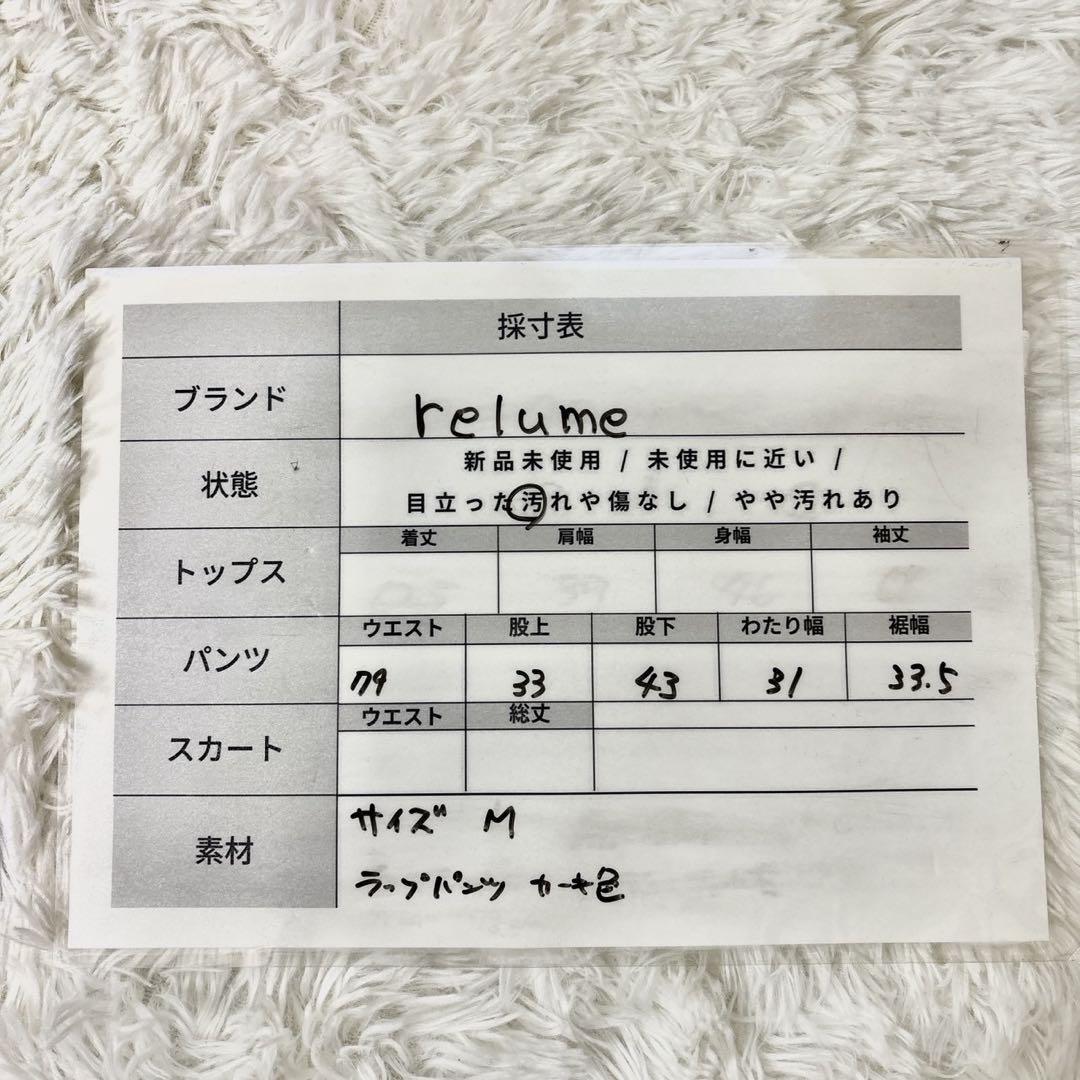 採寸表
ブランド relume
状態 新品未使用 / 未使用に近い /
目立った汚れや傷なし / やや汚れあり
トップス 着丈 肩幅 身幅 袖丈
パンツ ウエスト 股上 股下 わたり幅 裾幅
79 33 43 31 33.5
スカート ウエスト 総丈
素材 サイズ M
ラップパンツ カーキ色